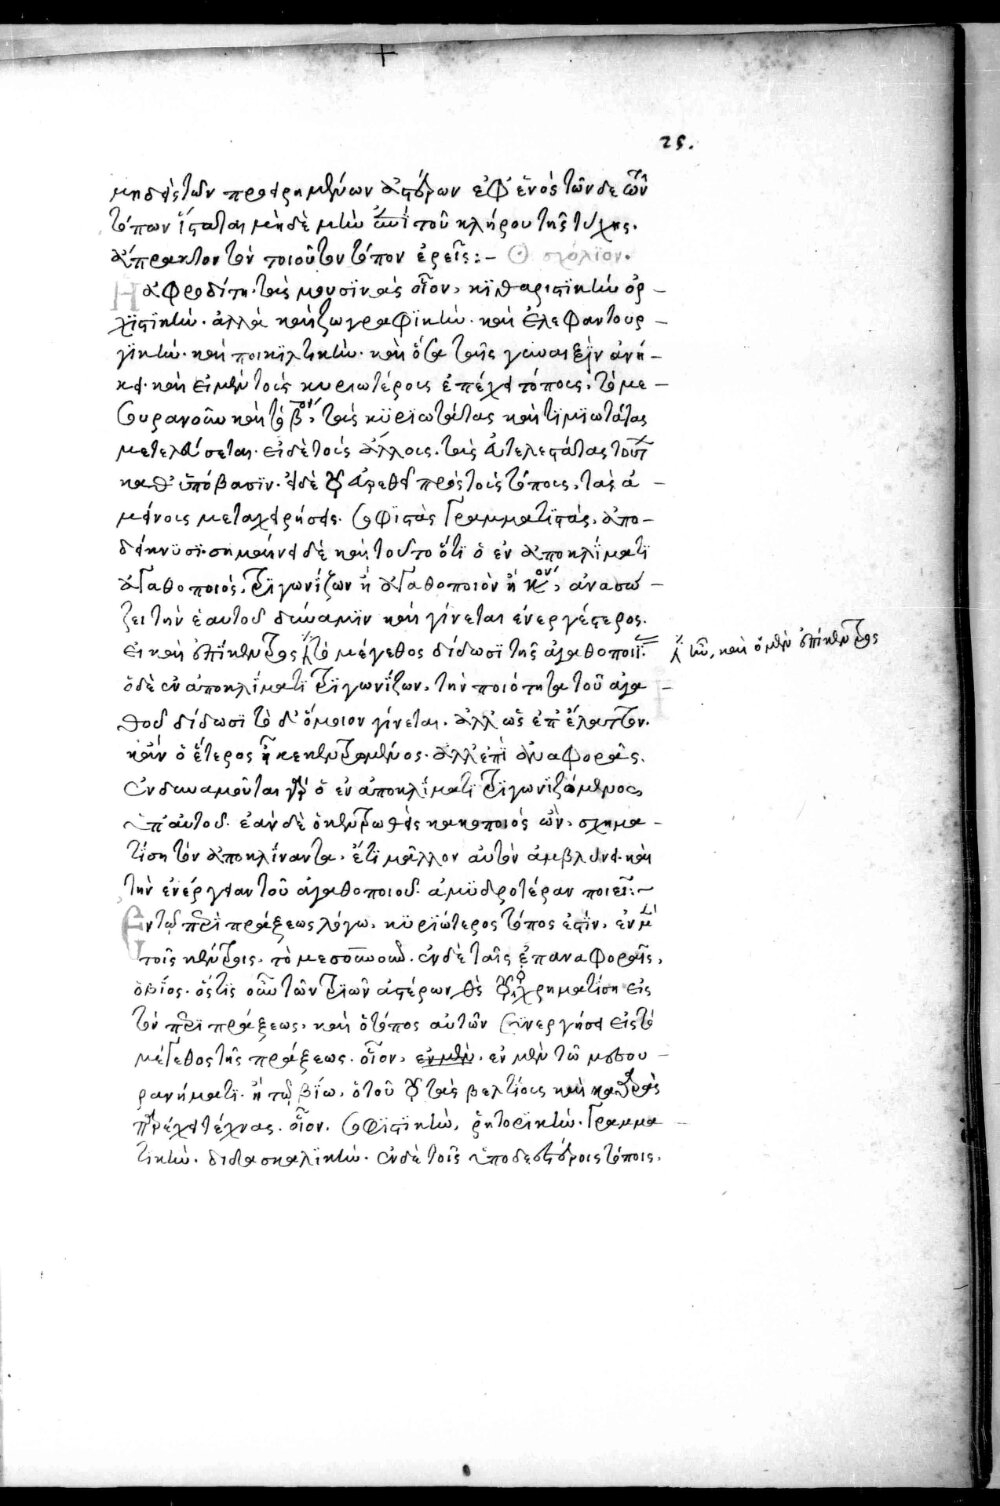 25.
μηδεὶς τῶν προειρημένων ἀστέρων ἐφ' ἑνὸς τῶνδε τῶν
τόπων ἵσταται μηδὲ μὴν ἐπὶ τοῦ κλήρου τῆς τύχης.
ἄπρακτον τὸν τοιοῦτον τόπον ἐρεῖς:– σχόλιον.
Η ἀφροδίτη. τὰς μουσικὰς οἷον, κιθαριστικὴν ὀρ–
χιστικὴν. ἀλλὰ καὶ ζωγραφϊκὴν. καὶ ἐλεφαντουρ–
γϊκὴν. καὶ ποικιλτικὴν. καὶ ὅσα ταῖς γυναιξὶν ἀνή–
κει. καὶ εἰ μὲν τοῖς κυριωτέροις ἐπέχει τόποις. τὸ με–
σουρανοῦν καὶ τὸ βον, τὰς κϋρϊωτάτας καὶ τϊμϊωτάτας
μετελεύσεται. εἰ δὲ τοῖς ἄλλοις. τὰς ἀτελεστάτας
καθ' ὑπόβασϊν. ☿ πρὸς τοῖς τόποις, τὰς ἀ–
μείνοις μεταχειρήσεις. σοφϊστὰς γραμματϊστάς, ἀπο–
δείκνϋσϊ. σημαίνει δὲ καὶ τοῦτο ὅτι ὁ ἐν ἀποκλΐματϊ
ἀγαθοποιὸς, τρϊγωνίζων ἢ ἀγαθοποιὸν ἢ κον, ἀνασώ–
ζει τὴν ἑαυτοῦ δύναμϊν καὶ γίνεται ἐνεργέστερος.
εἰ καὶ ἐπίκεντρος τὸ μέγεθος δίδωσϊ τῆς ἀγαθοποιΐ. ἦν, καὶ ὁ μὲν ἐπίκεντρος
ὁ δὲ ἐν ἀποκλΐματϊ τρϊγωνΐζων, τὴν ποιότητα τοῦ ἀγα–
θοῦ δίδωσϊ τὸ δ' ὅμοιον γίνεται. ἀλλ' ὡς ἐπ' ἔλαττον.
κἂν ὁ ἕτερος ᾖ κεκεντρωμένος. ἀλλ' ἐπὶ ἀναφορᾶς.
ἐνδυναμοῦται γὰρ ὁ ἐν ἀποκλΐματϊ τρϊγωνϊζόμενος
ὑπ' αὐτοῦ. ἐὰν δὲ ὁ κεντρωθεὶς κακοποιὸς ὢν, σχημα–
τίσῃ τὸν ἀποκλΐναντα, ἔτϊ μᾶλλον αὐτὸν ἀμβλύνει. καὶ
τὴν ἐνέργειαν τοῦ ἀγαθοποιοῦ. ἀμϋδροτέραν ποιεῖ:~
Εν τῷ περὶ πράξεως λόγω. κϋρϊώτερος τόπος ἐστίν, ἐν μὲν
τοῖς κέντροις. τὸ μεσουρανοῦν. ἐν δὲ ταῖς ἐπαναφοραῖς,
ὁ βίος. ὅστϊς οὖν τῶν τρϊῶν ἀστέρων χρηματίσῃ εἰς
τὸν περὶ πράξεως, καὶ ὁ τόπος αὐτῶν συνεργήσει εἰς τὸ
μέγεθος τῆς πράξεως. οἷον, ἐν μὲν. ἐν μὲν τῶ μεσου–
ρανήματϊ. ἢ τῷ βίω, ὁ τοῦ ☿ τὰς βελτίοις καὶ καθαρὰς
παρέχει τέχνας. οἷον. σοφϊστικὴν, ῥητορϊκὴν. γραμμα–
τϊκὴν. διδασκαλϊκὴν. ἐν δὲ τοῖς ὑποδεεστέροις τόποις.